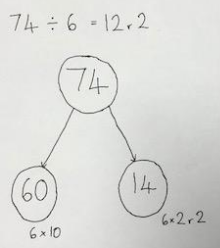 74 ÷ 6 = 12 r 2
74
60
14
6 × 10
6 × 2 r 2